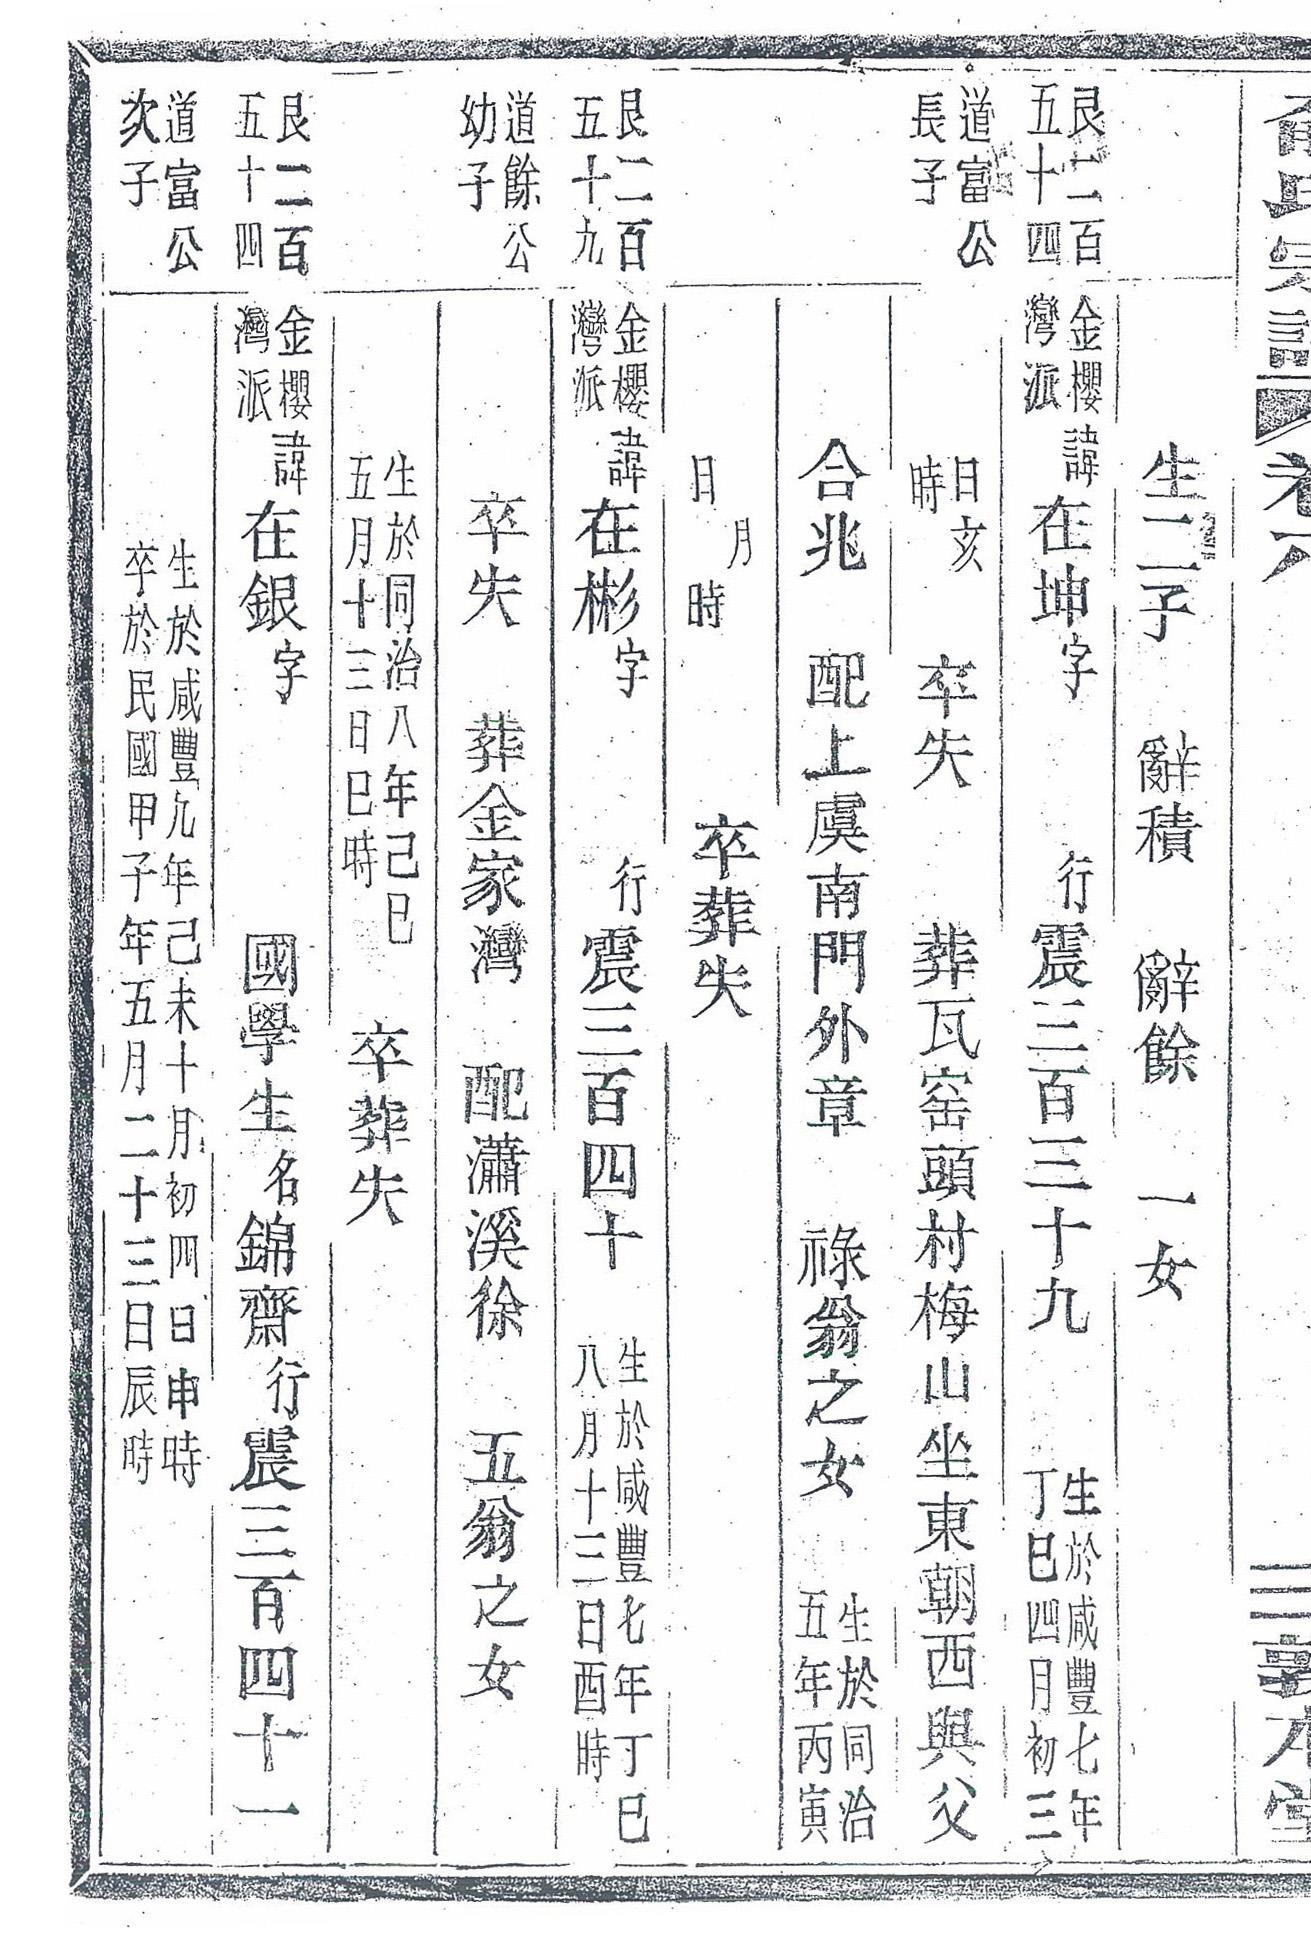 生二子　辭積　辭餘　一女
艮二百
五十四
金櫻
灣派
諱在坤字　行震三百三十九
生於咸豐七年
丁巳四月初三
道富公
長子
日亥
時
卒失　葬瓦窑頭村梅山坐東朝西與父
合兆　配上虞南門外章　祿翁之女
生於同治
五年丙寅
月
日　時
卒葬失
艮二百
五十九
金櫻
灣派
諱在彬字　行震三百四十
生於咸豐七年丁巳
八月十三日酉時
道餘公
幼子
卒失　葬金家灣　配瀟溪徐　五翁之女
生於同治八年己巳
五月十三日巳時
卒葬失
艮二百
五十四
金櫻
灣派
諱在銀字　國學生名錦齋行震三百四十一
道富公
次子
生於咸豐九年己未十月初四日申時
卒於民國甲子年五月二十三日辰時